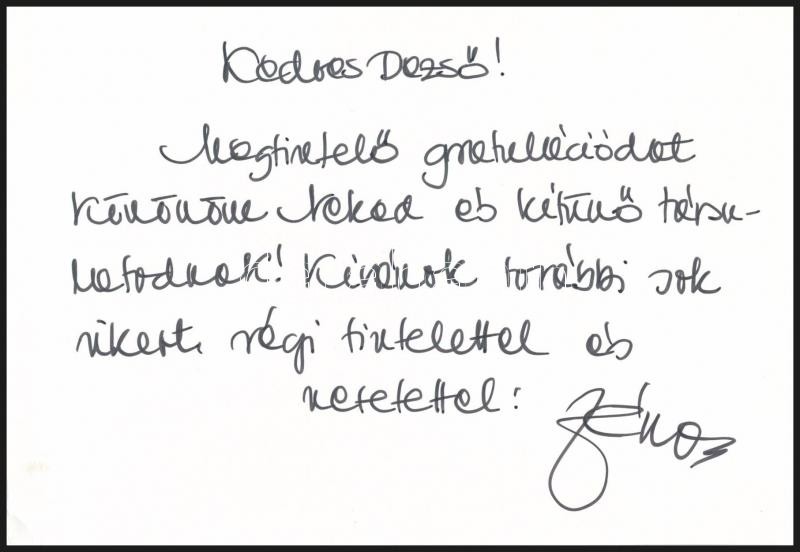 Kedves Dezső!
Megtisztelő gratulációdat
köszönöm Neked és kitűnő társu-
latodnak! Kívánok további sok
sikert, régi tisztelettel és
szeretettel:
János